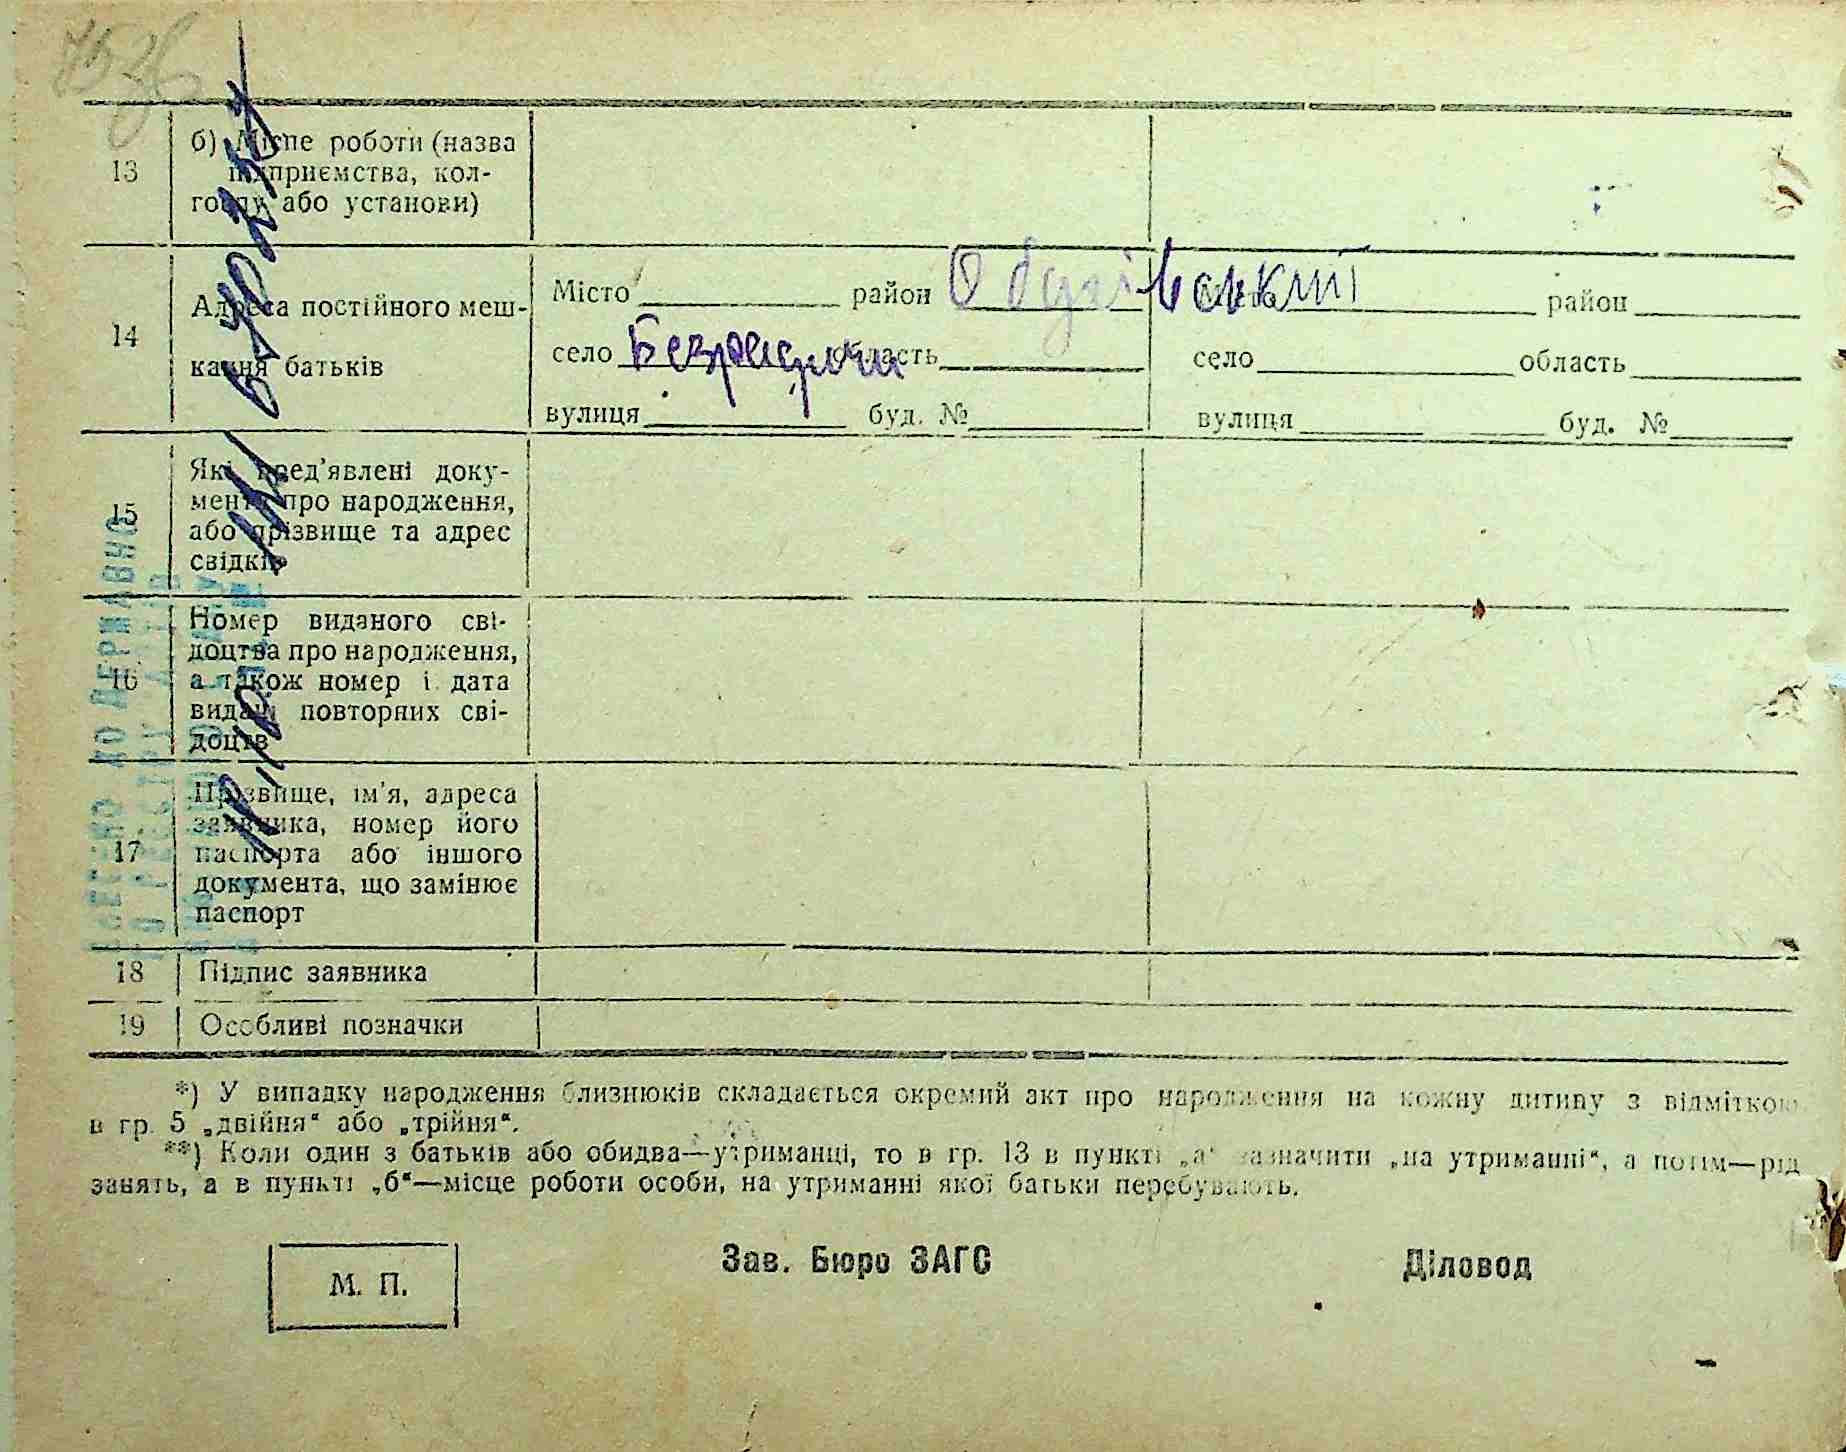 13
б) Місце роботи (назва
підприємства, кол-
госпу або установи)
14
Адреса постійного меш-
кання батьків
Місто район Обухівський
село Безрадичі область
вулиця буд. №
Місто район
село область
вулиця буд. №
15
Які пред’явлені доку-
менти про народження,
або прізвище та адрес
свідків
16
Номер виданого сві-
доцтва про народження,
а також номер і дата
видачі повторних сві-
доцтв
17
Прізвище, ім’я, адреса
заявника, номер його
паспорта або іншого
документа, що замінює
паспорт
18 Підпис заявника
19 Особливі позначки
*) У випадку народження близнюків складається окремий акт про народження на кожну дитину з відміткою
в гр. 5 „двійня“ або „трійня“.
**) Коли один з батьків або обидва—утриманці, то в гр. 13 в пункті „а“ зазначити „на утриманні“, а потім—рід
занять, а в пункті „б“—місце роботи особи, на утриманні якої батьки перебувають.
М. П.
Зав. Бюро ЗАГС
Діловод